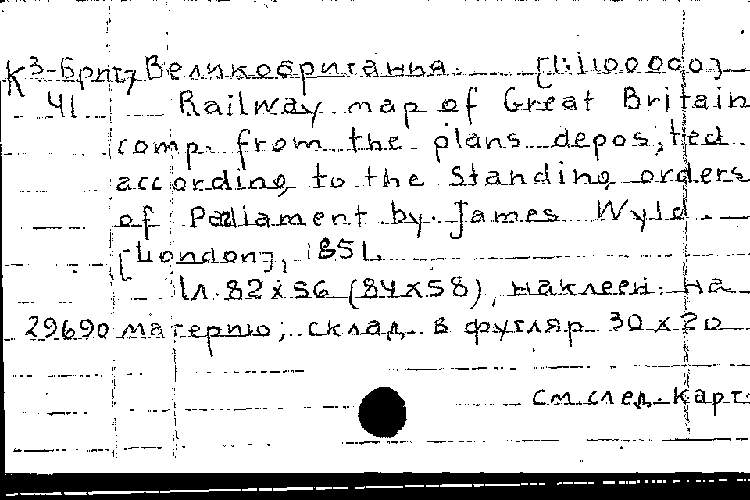 К 3-Брит Великобритания. [1:1100000]
41 Railway map of Great Britain
comp. from the plans deposited
according to the Standing orders
of Parliament by James Wyld.
[London], 1851.
1л. 82 x 56 (84 x 58), наклеен. на
29690 материю; склад. в футляр 30 x 20
см. след. карт.